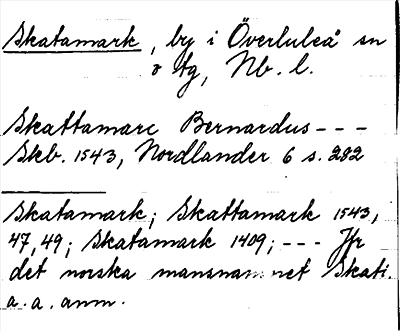 Skatamark, by i Överluleå sn
o tg, Nb. l.
Skattamarc Bernardus - - -
Skb. 1543, Nordlander 6 s. 282
Skatamark; Skattamark 1543,
47, 49; Skatamark 1409; - - - Jfr
det norska mansnamnet Skati.
a. a. anm.